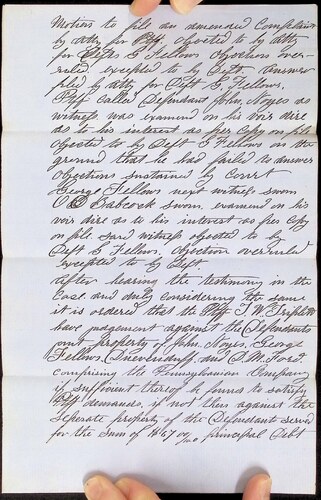 Motion to file an amended Complaint
by atty for Plff, objected to by atty
for Defts G Fellows. Objection over-
ruled excepted to by Deft. Answer
filed by atty for Deft G. Fellows.
Plff called Defendant John Noyes as
witness was examend on his voir dire
as to his interest as per Copy on file
objected to by Deft G Fellows on the
ground that he had failed to answer
Objections sustained by Court
George Fellows next witness sworn
O D Babcock sworn, examend on his
voir dire as to his interest as per Copy
on file. said witness objected to by
Deft G. Fellows, objection overruled
excepted to by Deft.
After hearing the testimony in the
Case and duly considering the same
it is ordered that the Plff T. W. Triplett
have judgement against the Defendants
property of John, Noyes, George
Fellows, and D. M. Ford
comprising the Pennsylvanian Company
if sufficient thereof be found to satisfy
Plff demands, if not then against the
seperate property of the Defendant served
for the Sum of principal Debt